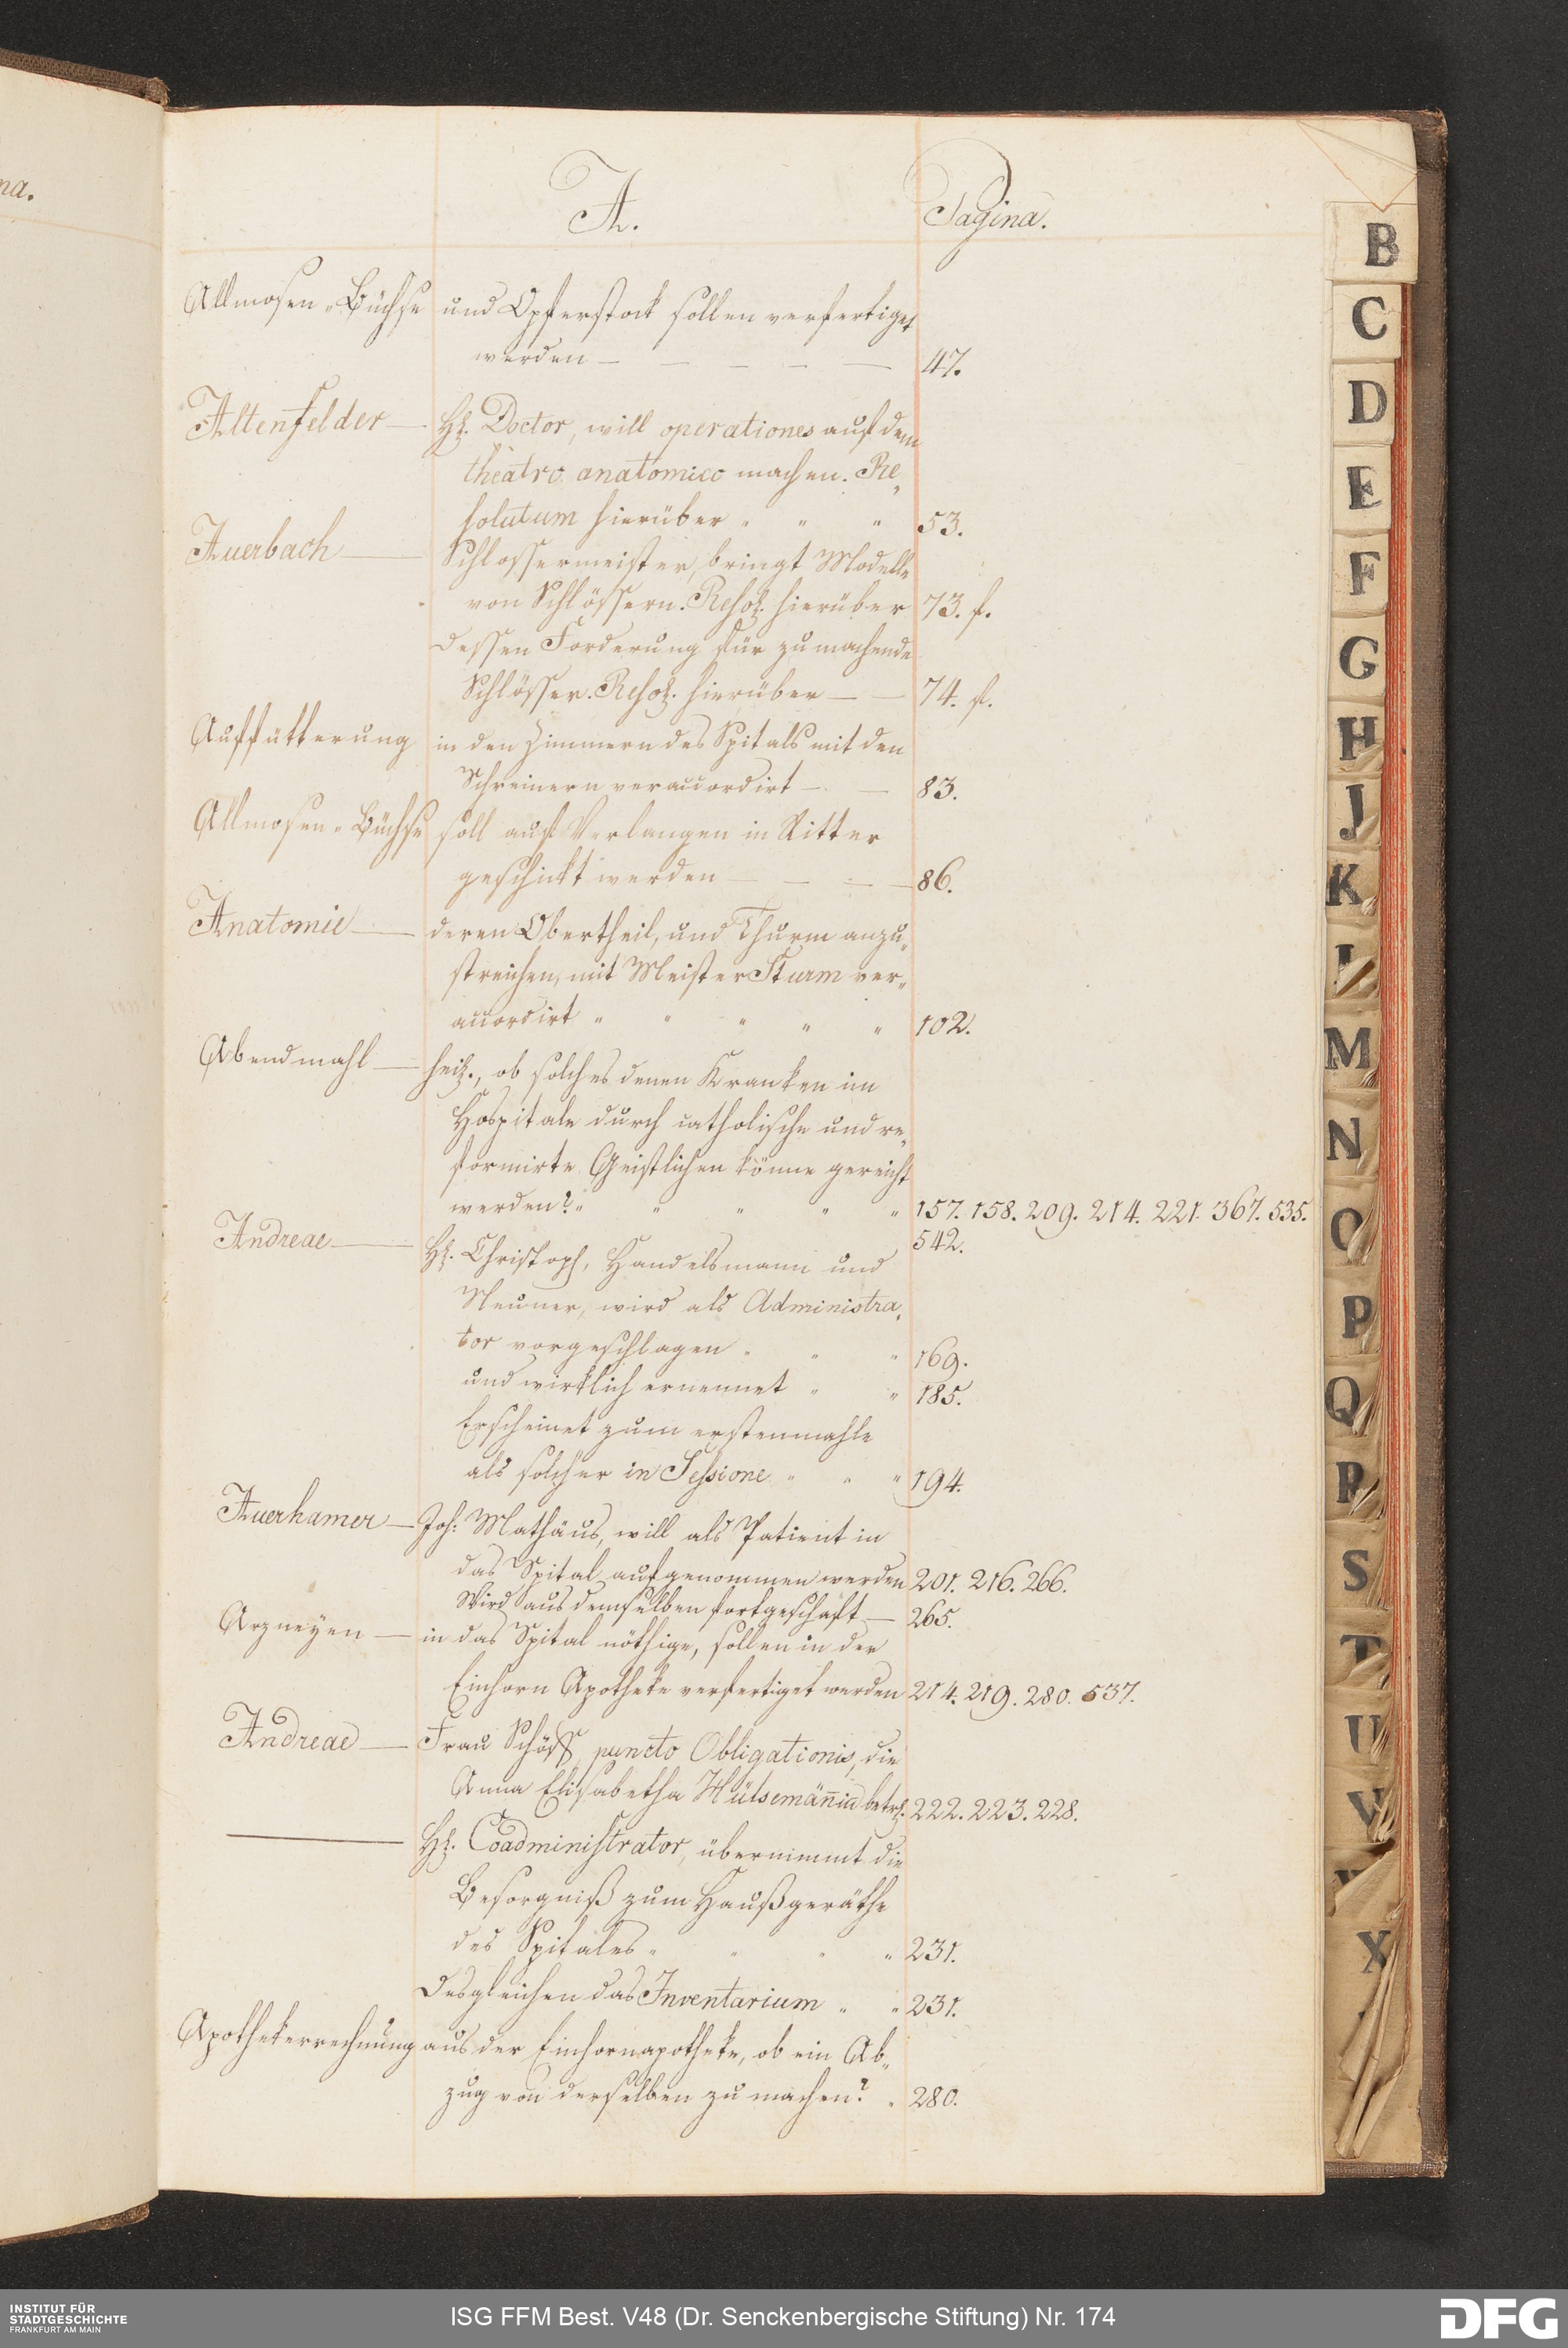 na.
A.
Pagina.
Allmosen-Büchse und Opferstock sollen verfertiget
werden — — — — — 47.
Altenfelder — H. Doctor, will operationes auf dem
theatro anatomico machen. Re„
solutum hierüber „ „ „ 53.
Auerbach — Schlossermeister, bringt Modelle
von Schlössern. Resol. hierüber 73. f.
Dessen Forderung für zu machende
Schlösser. Resol. hierüber — — 74. f.
Auffütterung in den Zimmern des Spitals mit den
Schreinern veraccordirt — — 83.
Allmosen-Büchse soll auf Verlangen in Ritter
geschickt werden — — — — 86.
Anatomie — deren Obertheil, und Thurm anzu„
streichen, mit Meister Sturm ver„
accordirt „ „ „ „ „ 102.
Abendmahl — heil., ob solches denen Kranken im
Hospitale durch catholische und re„
formirte Geistlichen könne gereicht
werden? „ „ „ „ „ 157. 158. 209. 214. 221. 367. 535.
542.
Andreae — H. Christoph, Handelsmann und
Neuner, wird als Administra„
tor vorgeschlagen „ „ „ 169.
und wirklich ernennet „ „ 185.
Erscheinet zum erstenmahle
als solcher in Sessione „ „ „ 194.
Auerhamer — Joh: Mathäus, will als Patient in
das Spital aufgenommen werden 201. 216. 266.
Wird aus demselben fortgeschaft — 265.
Arzneyen — in das Spital nöthige, sollen in der
Einhorn Apotheke verfertiget werden 214. 219. 280. 537.
Andreae — Frau Schöff, puncto Obligationis, die
Anna Elisabetha Hülsemän̄in betr. 222. 223. 228.
— H. Coadministrator, übernimmt die
Besorgniß zum Haußgeräthe
des Spitales „ „ „ „ 231.
Desgleichen das Inventarium „ „ 231.
Apothekerrechnung aus der Einhornapotheke, ob ein Ab„
zug von derselben zu machen? „ 280.
B
C
D
E
F
G
H
J
K
L
M
N
O
P
Q
R
S
T
U
V
X
INSTITUT FÜR
STADTGESCHICHTE
FRANKFURT AM MAIN
ISG FFM Best. V48 (Dr. Senckenbergische Stiftung) Nr. 174
DFG